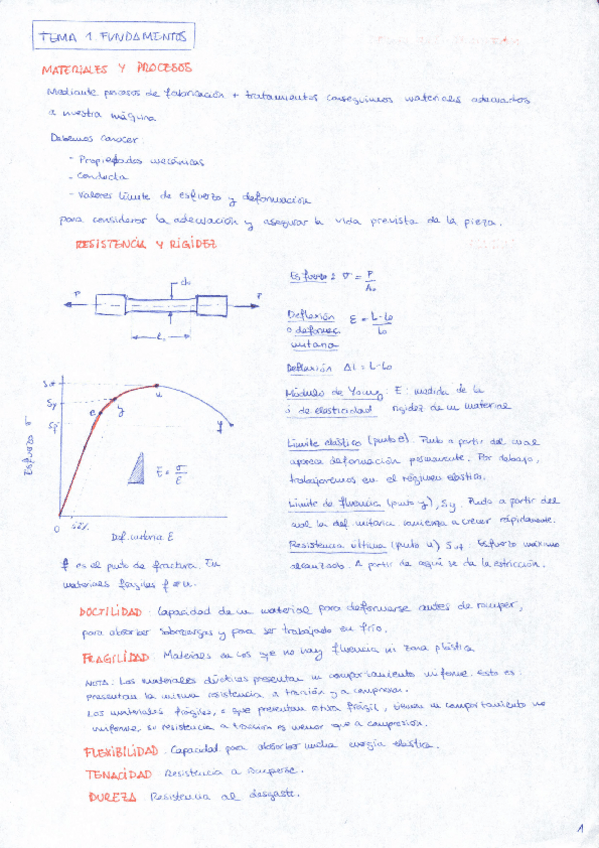 TEMA 1. FUNDAMENTOS
MATERIALES Y PROCESOS
Mediante procesos de fabricación + tratamientos conseguimos materiales adecuados
a nuestra máquina
Debemos conocer:
- Propiedades mecánicas
- Conducta
- Valores límite de esfuerzo y deformación
para considerar la adecuación y asegurar la vida prevista de la pieza.
RESISTENCIA Y RIGIDEZ
P
do
P
Esfuerzo: σ = P/A₀
Deflexión
o deformac.
unitaria
ε = L-lo/lo
Deflexión Δl = L-lo
Módulo de Young: E: medida de la
ó de elasticidad rigidez de un material
Límite elástico (punto e). Punto a partir del cual
aparece deformación permanente. Por debajo,
trabajaremos en el régimen elástico.
Límite de fluencia (punto y), Sy. Punto a partir del
cual la def. unitaria comienza a crecer rápidamente.
Resistencia última (punto u) Sut. Esfuerzo máximo
alcanzado. A partir de aquí se da la estricción.
Esfuerzo σ
Sut
Sy
e
y
u
f
E = σ/ε
0
Def. unitaria ε
f es el punto de fractura. En
materiales frágiles f ≡ u.
DUCTILIDAD: Capacidad de un material para deformarse antes de romper,
para absorber sobrecargas y para ser trabajado en frío.
FRAGILIDAD: Materiales en los que no hay fluencia ni zona plástica
NOTA: Los materiales dúctiles presentan un comportamiento uniforme. Esto es:
presentan la misma resistencia a tracción y a compresión.
Los materiales frágiles, o que presentan rotura frágil, tienen un comportamiento no
uniforme: su resistencia a tracción es menor que a compresión.
FLEXIBILIDAD: Capacidad para absorber mucha energía elástica.
TENACIDAD Resistencia a romperse.
DUREZA Resistencia al desgaste.
1